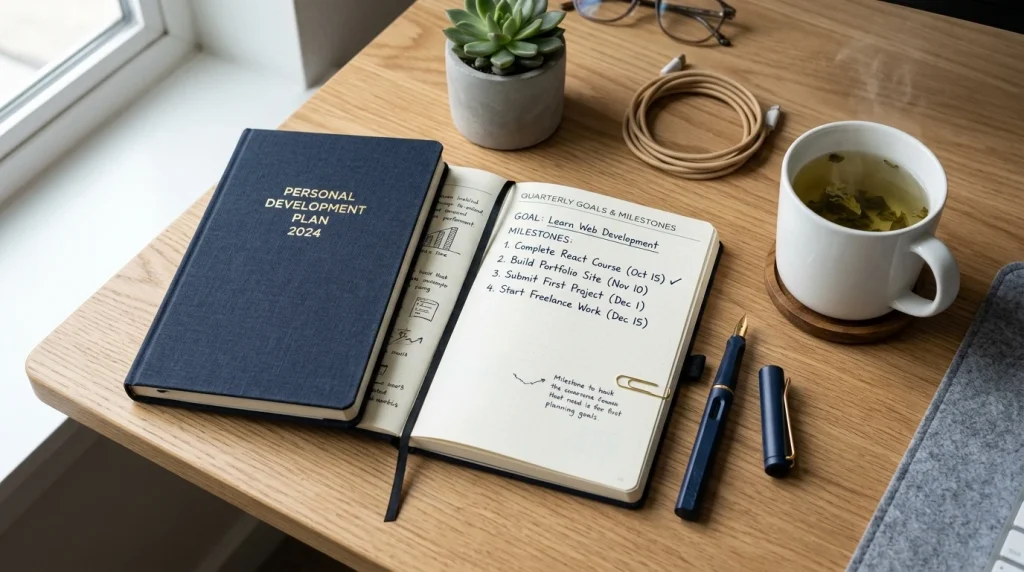 PERSONAL
DEVELOPMENT
PLAN
2024
QUARTERLY GOALS & MILESTONES
GOAL: Learn Web Development
MILESTONES:
1. Complete React Course (Oct 15) ✓
2. Build Portfolio Site (Nov 10)
3. Submit First Project (Dec 1)
4. Start Freelance Work (Dec 15)
Milestone to
the
that need is for first
planning goals.